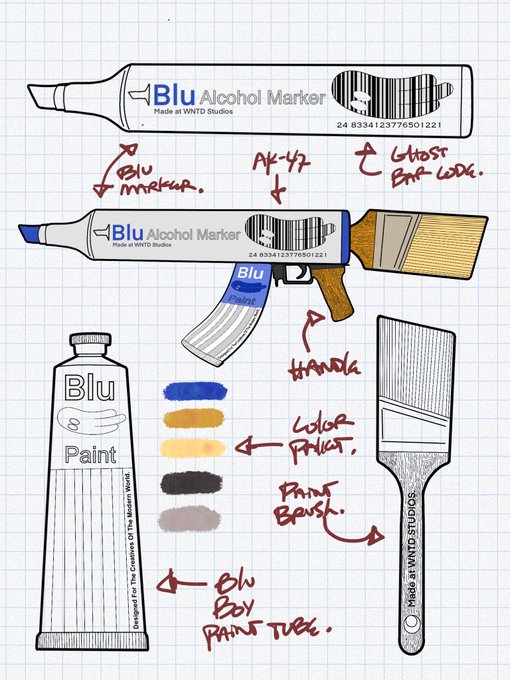 Blu Alcohol Marker
Made at WNTD Studios
24 8334123776501221
BLU
MARKER.
AK-47
GHOST
BAR CODE.
Blu Alcohol Marker
Made at WNTD Studios
24 8334123776501221
Blu
Paint
HANDLE
Blu
Paint
Designed For The Creatives Of The Modern World.
COLOR
PALLET.
PAINT
BRUSH.
Made at WNTD STUDIOS.
BLU
BOY
PAINT TUBE.